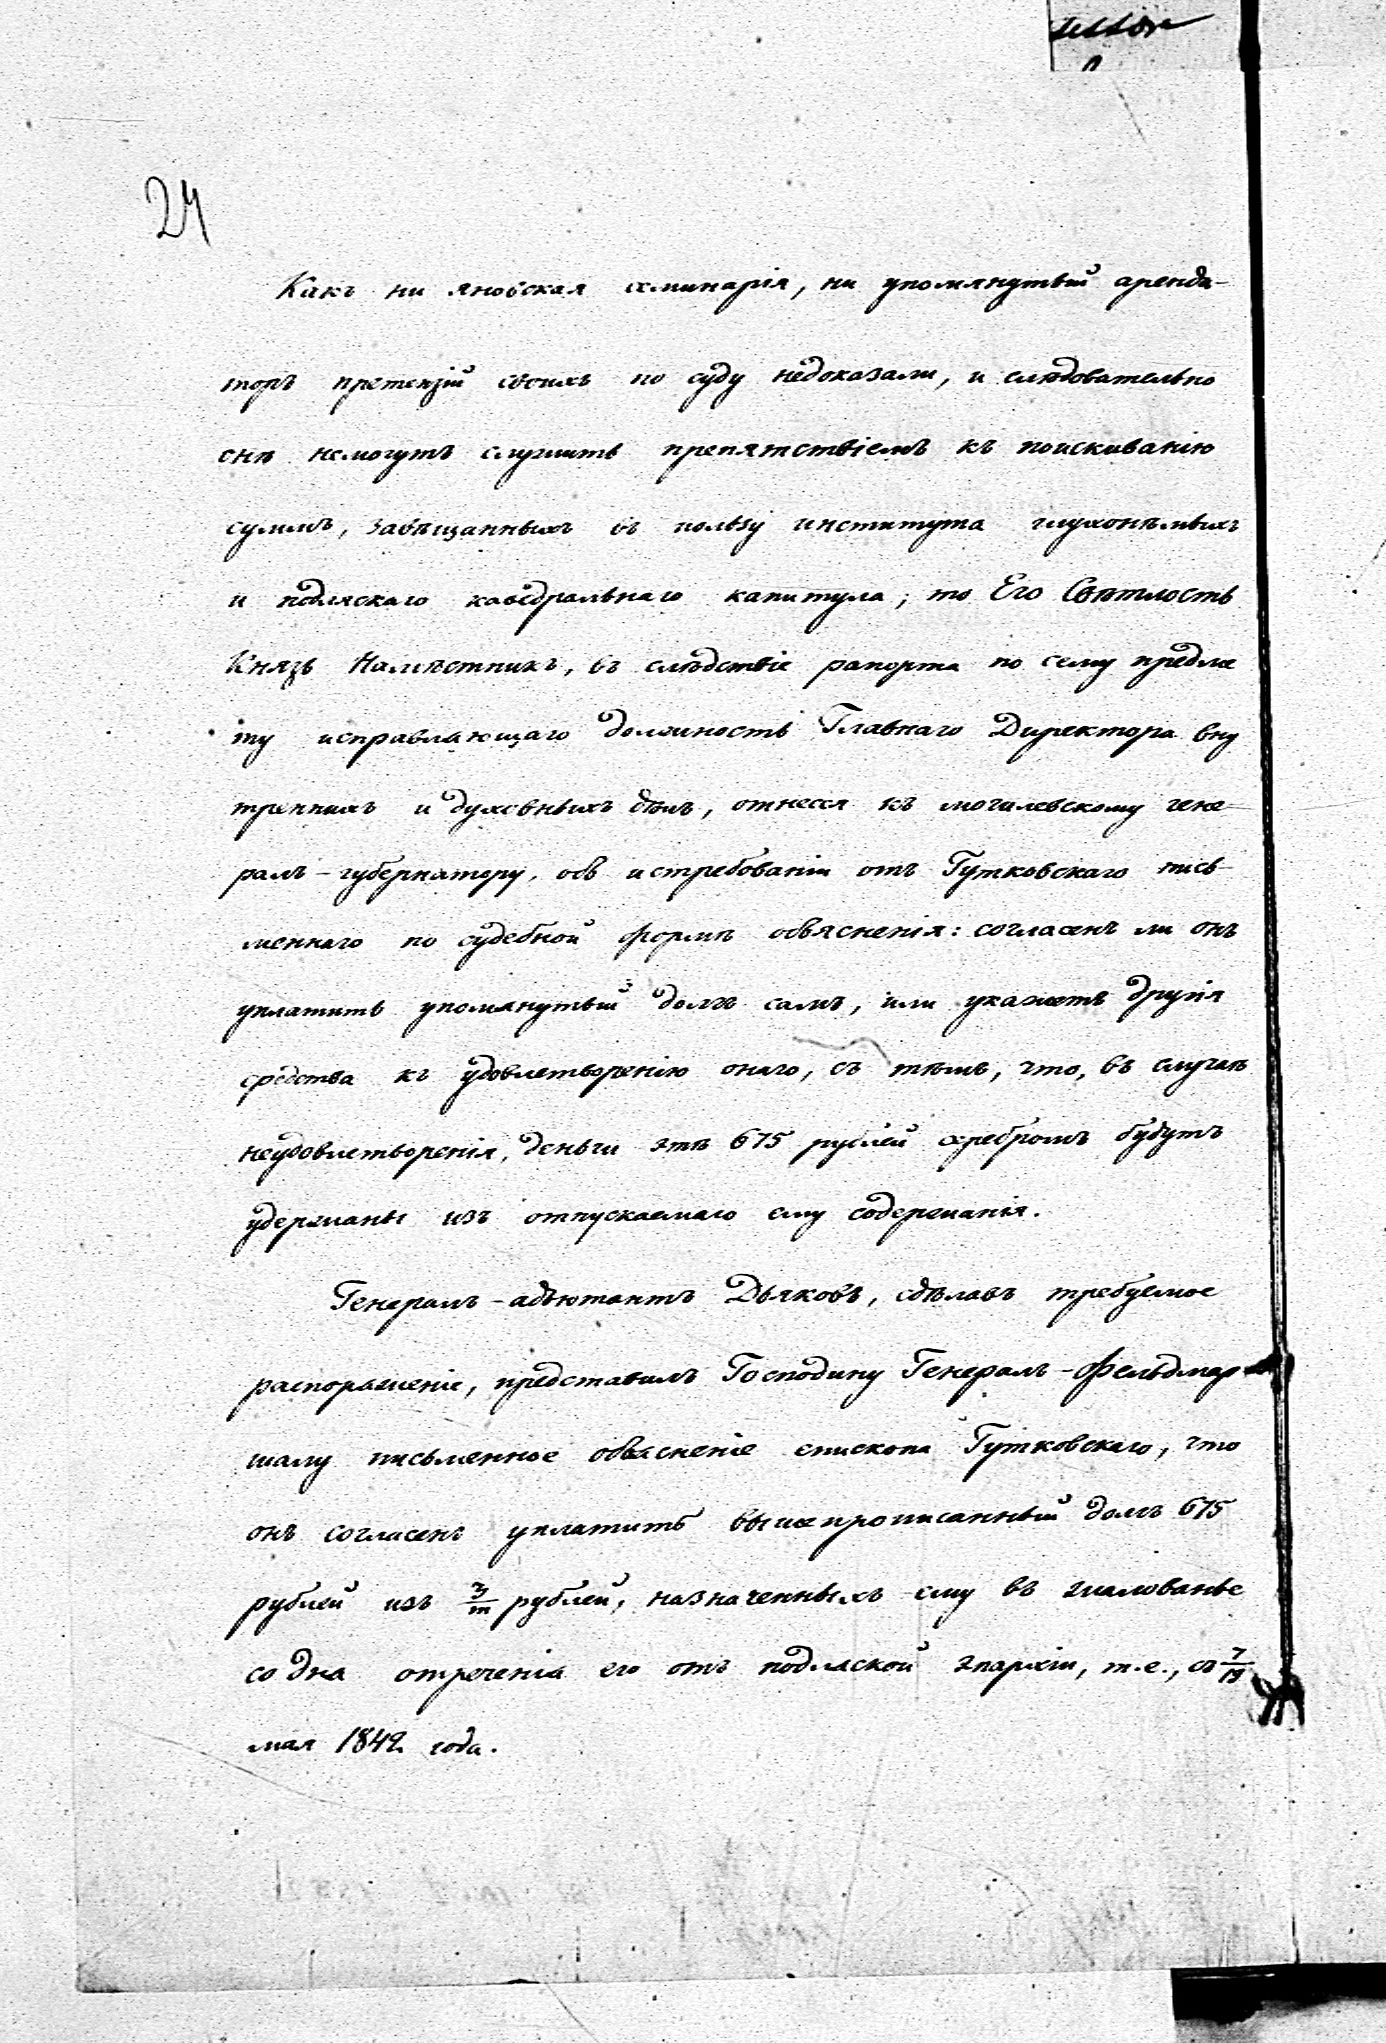 24
Какъ ни яновская семинарія, ни упомянутый аренда-
торъ претензій своихъ по суду недоказали, и слѣдовательно
онѣ немогутъ служить препятствіемъ къ поискиванію
суммъ, завѣщанныхъ въ пользу института глухонѣмыхъ
и подляскаго каѳедральнаго капитула; то Его Свѣтлость
Князь Намѣстникъ, въ слѣдствіе рапорта по сему предме
ту исправляющаго должность Главнаго Директора вну
треннихъ и духовныхъ дѣлъ, отнесся къ могилевскому гене-
ралъ-губернатору, объ истребованіи отъ Гутковскаго пись-
меннаго по судебной формѣ объясненія: согласенъ ли онъ
уплатить упомянутый долгъ самъ, или укажетъ другія
средства къ удовлетворенію онаго, съ тѣмъ, что, въ случаѣ
неудовлетворенія, деньги этѣ 675 рублей серебромъ будутъ
удержаны изъ отпускаемаго ему содержанія.
Генералъ-адъютантъ Дьяковъ, сдѣлавъ требуемое
распоряженіе, представилъ Господину Генералъ-Фельдмар
шалу письменное объясненіе епископа Гутковскаго, что
онъ согласенъ уплатить вышепрописанный долгъ 675
рублей изъ 3/m рублей, назначенныхъ ему въ жалованье
со дня отреченія его отъ подляской эпархіи, т.е., съ 7/19
мая 1842 года.